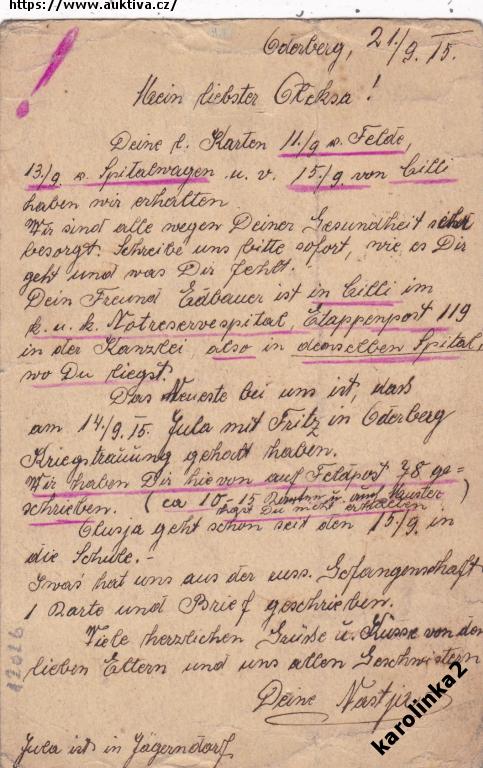 https://www.auktiva.cz/
Oderberg, 21/9. 15.
Mein liebster Oleksa!
Deine l. Karten 11./9 v. Felde,
13./9. v. Spitalwagen u. v. 15./9. von Cilli
haben wir erhalten.
Wir sind alle wegen Deiner Gesundheit sehr
besorgt. Schreibe uns bitte sofort, wie es Dir
geht und was Dir fehlt!
Dein Freund Edbauer ist in Cilli im
k. u. k. Notreservespital, Etappenpost 119
in der Kanzlei, also in demselben Spital,
wo Du liegst.
Das Neueste bei uns ist, daß
am 14./9. 15. Jula mit Fritz in Oderberg
Kriegstrauung gehabt haben.
Wir haben Dir hievon auf Feldpost 78 ge-
schrieben. (ca 10-15 Karten u.
hast Du nicht erhalten)
Olusja geht schon seit den 15./9. in
die Schule. -
Iwas hat uns aus der russ. Gefangenschaft
1 Karte und Brief geschrieben.
Viele herzlichen Grüße u. Küsse von den
lieben Eltern und uns allen Geschwistern
Deine Nastja
Jula ist in Jägerndorf
12026
karolinka2